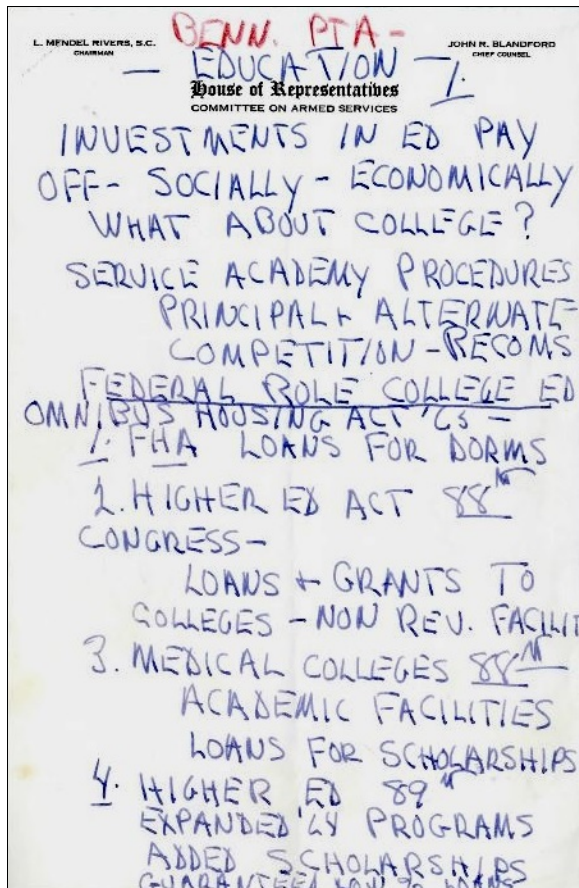 BENN. PTA -
L. MENDEL RIVERS, S.C.
CHAIRMAN
JOHN R. BLANDFORD
CHIEF COUNSEL
— EDUCATION — 1.
House of Representatives
COMMITTEE ON ARMED SERVICES
INVESTMENTS IN ED PAY
OFF - SOCIALLY - ECONOMICALLY
WHAT ABOUT COLLEGE?
SERVICE ACADEMY PROCEDURES
PRINCIPAL + ALTERNATE
COMPETITION - RECOMS
FEDERAL ROLE COLLEGE ED
OMNIBUS HOUSING ACT '65 -
1. FHA LOANS FOR DORMS
2. HIGHER ED ACT 88TH
CONGRESS -
LOANS + GRANTS TO
COLLEGES - NON REV. FACILIT
3. MEDICAL COLLEGES 88TH
ACADEMIC FACILITIES
LOANS FOR SCHOLARSHIPS
4. HIGHER ED 89TH
EXPANDED '64 PROGRAMS
ADDED SCHOLARSHIPS
GUARANTEED